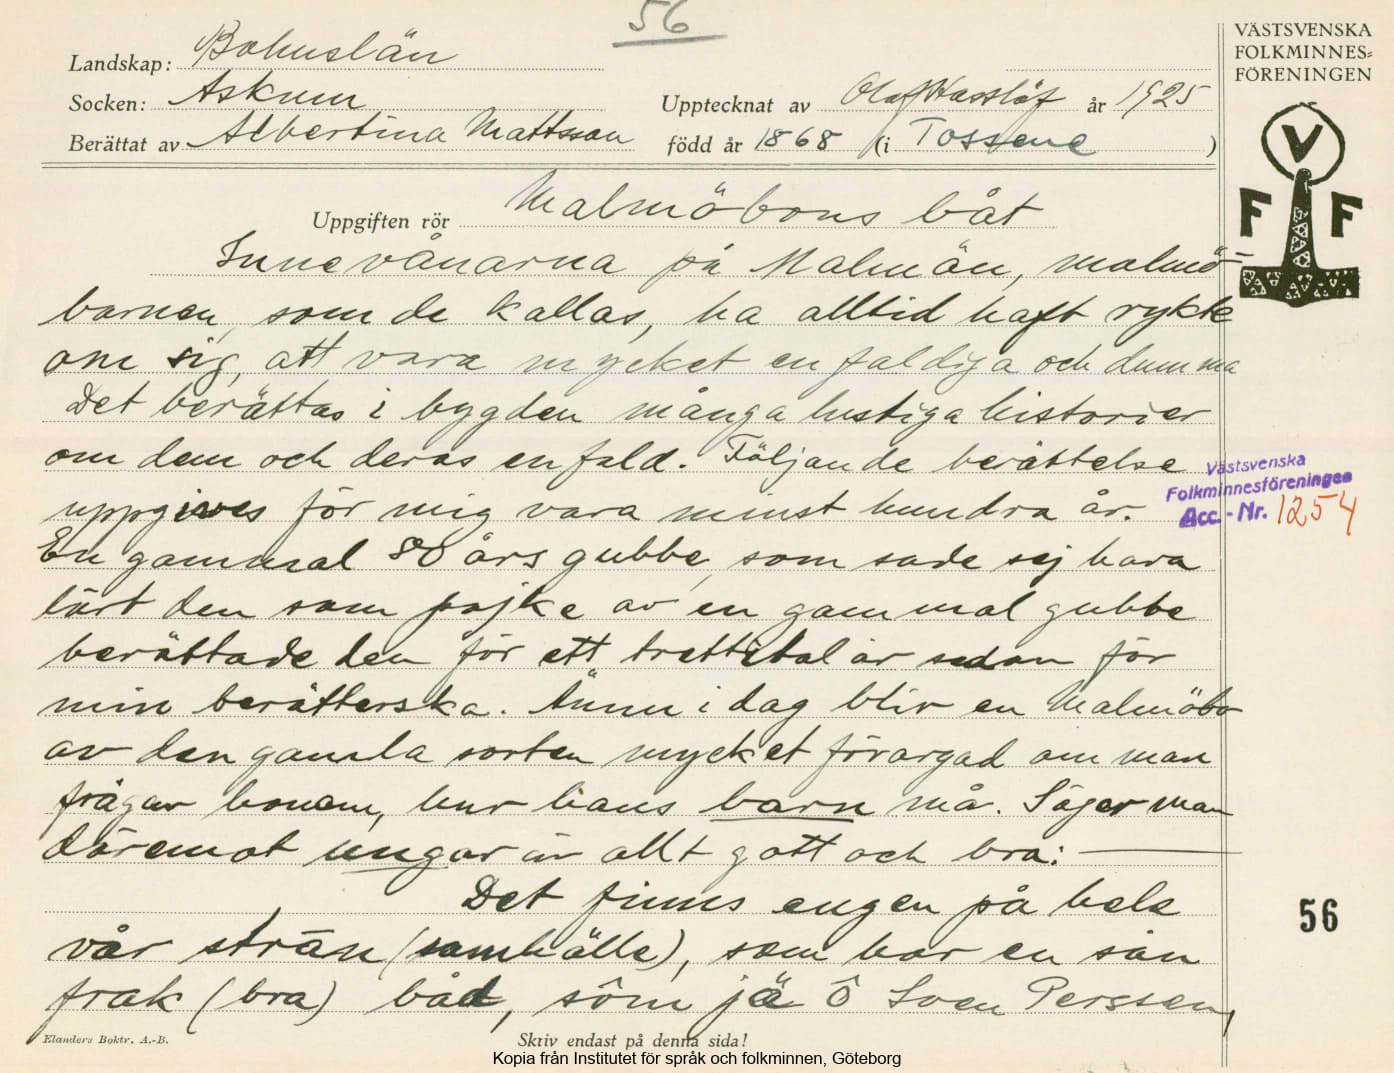 56
VÄSTSVENSKA
FOLKMINNES=
FÖRENINGEN
Landskap: Bohuslän
Socken: Askum
Upptecknat av Olof Hasslöf år 1925
Berättat av Albertina Mattsson född år 1868 (i Tossene )
V
F F
Uppgiften rör Malmöbons båt
Innevånarna på Malmön, malmö-
barnen, som de kallas, ha alltid haft rykte
om sig, att vara mycket enfaldiga och dumma
Det berättas i bygden många lustiga historier
om dem och deras enfald. Följande berättelse
uppgives för mig vara minst hundra år.
En gammal 80 års gubbe, som sade sej hava
lärt den som pojke av en gammal gubbe
berättade den för ett trettital år sedan för
min berätterska. Ännu i dag bliv en Malmöbo
av den gamla sorten mycket förargad om man
frågar honom, hur hans barn må. Säger man
däremot ungar är allt gott och bra:
Det finns engen på hele
vår strän (samhälle), som har en sån
frak (bra) båd, sôm jä ô Sven Perssen,
Västsvenska
Folkminnesföreningen
Acc.-Nr. 1254
56
Elanders Boktr. A.-B.
Skriv endast på denna sida!
Kopia från Institutet för språk och folkminnen, Göteborg